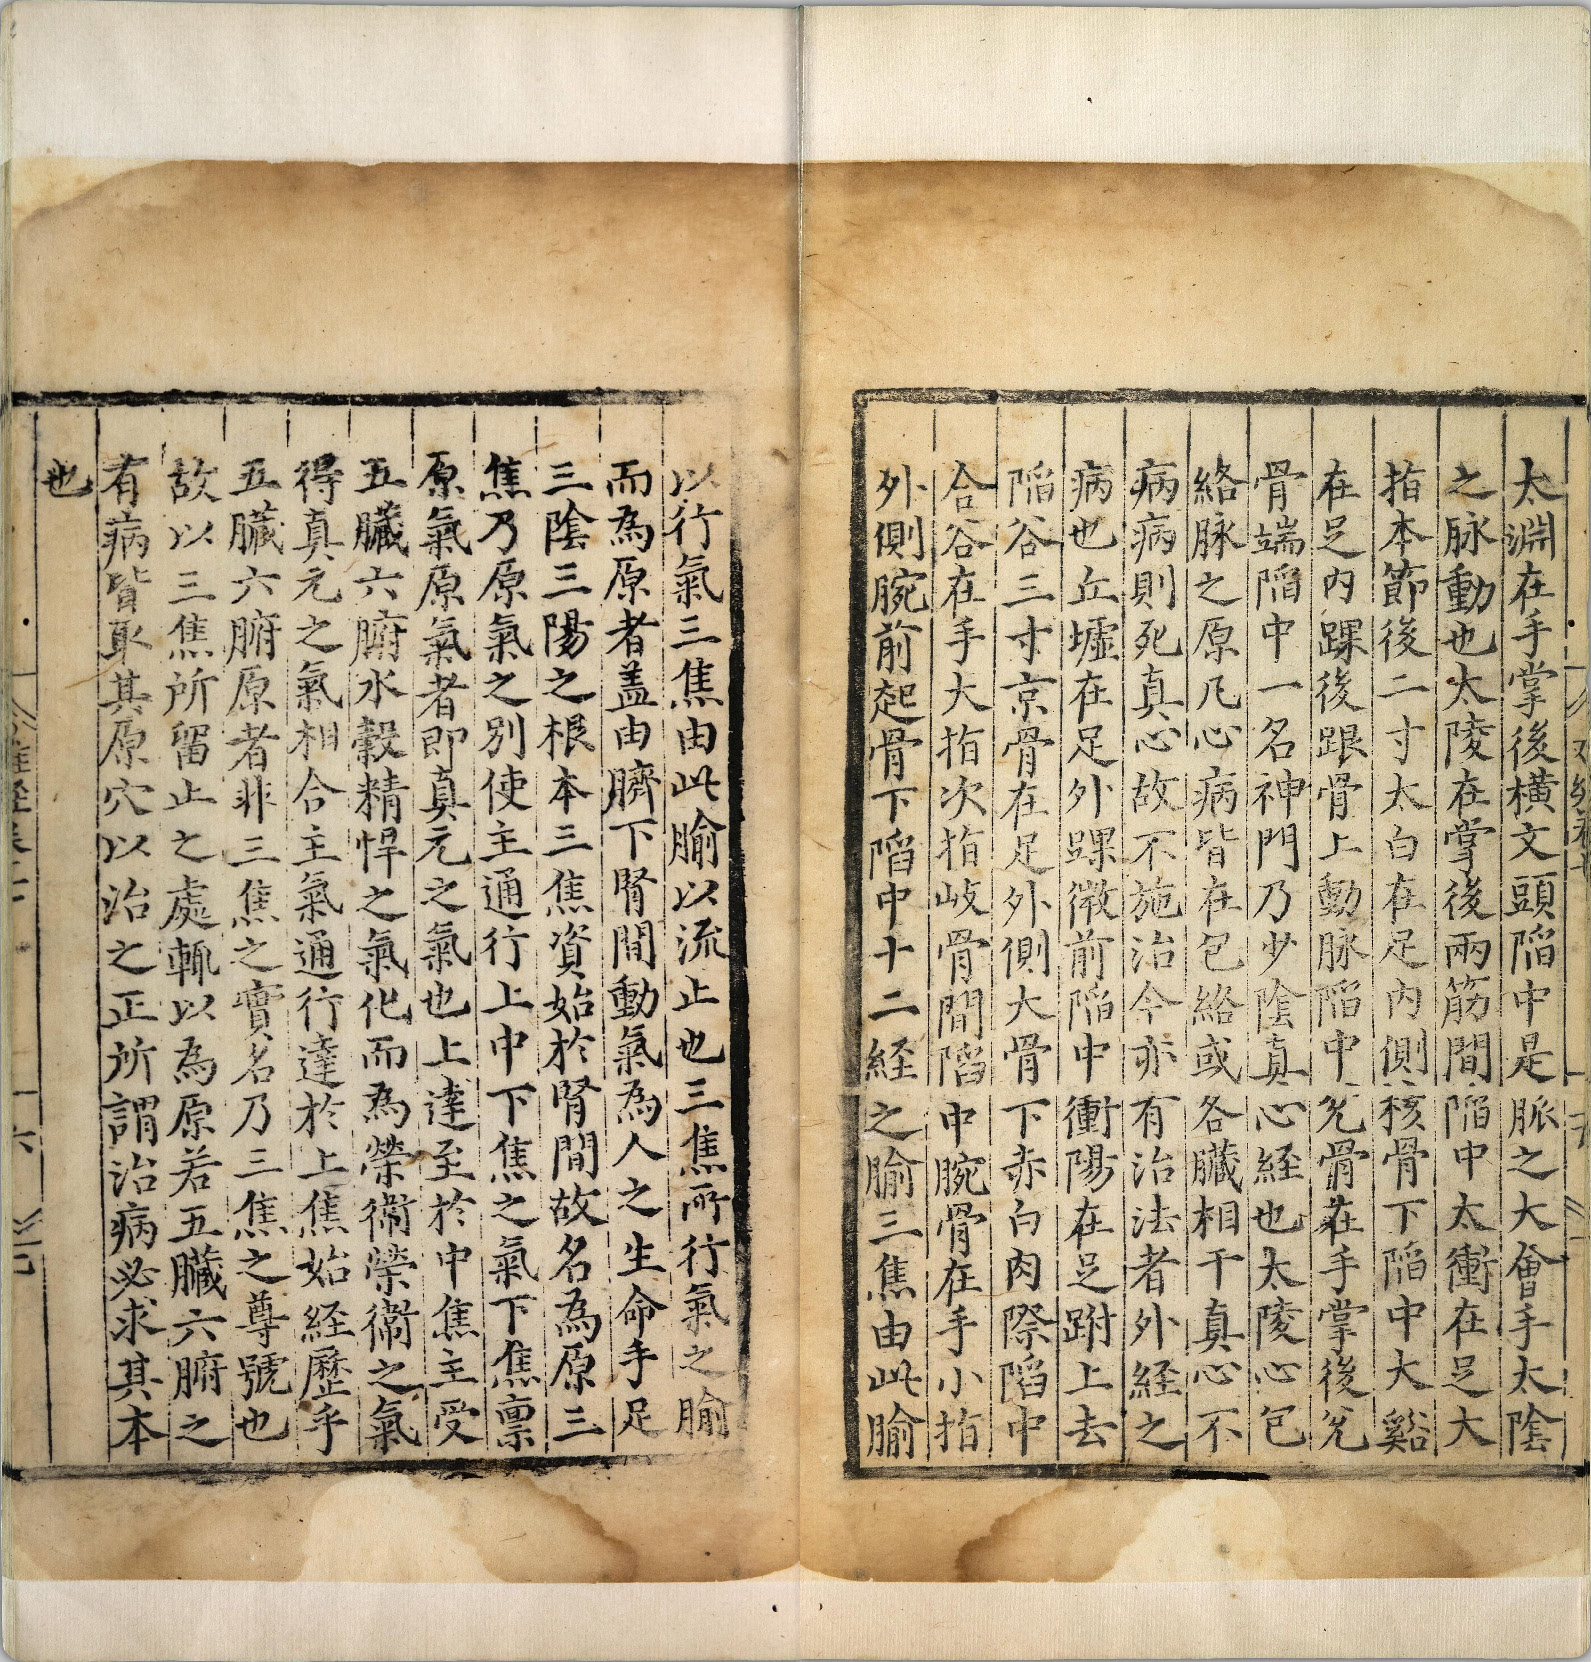 太淵在手掌後橫文頭陷中是脈之大會手太陰
之脉動也太陵在掌後兩筋間陷中太衝在足大
指本節後二寸太白在足內側核骨下陷中大谿
在足內踝後跟骨上動脉陷中兊骨在手掌後兊
骨端陷中一名神門乃少陰真心経也太陵心包
絡脉之原凡心病皆在包絡或各臟相干真心不
病病則死真心故不施治今亦有治法者外経之
病也丘墟在足外踝微前陷中衝陽在足跗上去
陷谷三寸京骨在足外側大骨下赤白肉際陷中
合谷在手大指次指岐骨間陷中腕骨在手小指
外側腕前起骨下陷中十二経之腧三焦由此腧
以行氣三焦由此腧以流止也三焦所行氣之腧
而為原者盖由臍下腎間動氣為人之生命手足
三陰三陽之根本三焦資始於腎間故名為原三
焦乃原氣之別使主通行上中下焦之氣下焦禀
原氣原氣者即真元之氣也上達至於中焦主受
五臟六腑水穀精悍之氣化而為榮衛榮衛之氣
得真元之氣相合主氣通行達於上焦始経歷乎
五臟六腑原者非三焦之實名乃三焦之尊號也
故以三焦所留止之處輒以為原若五臟六腑之
有病皆取其原穴以治之正所謂治病必求其本
也